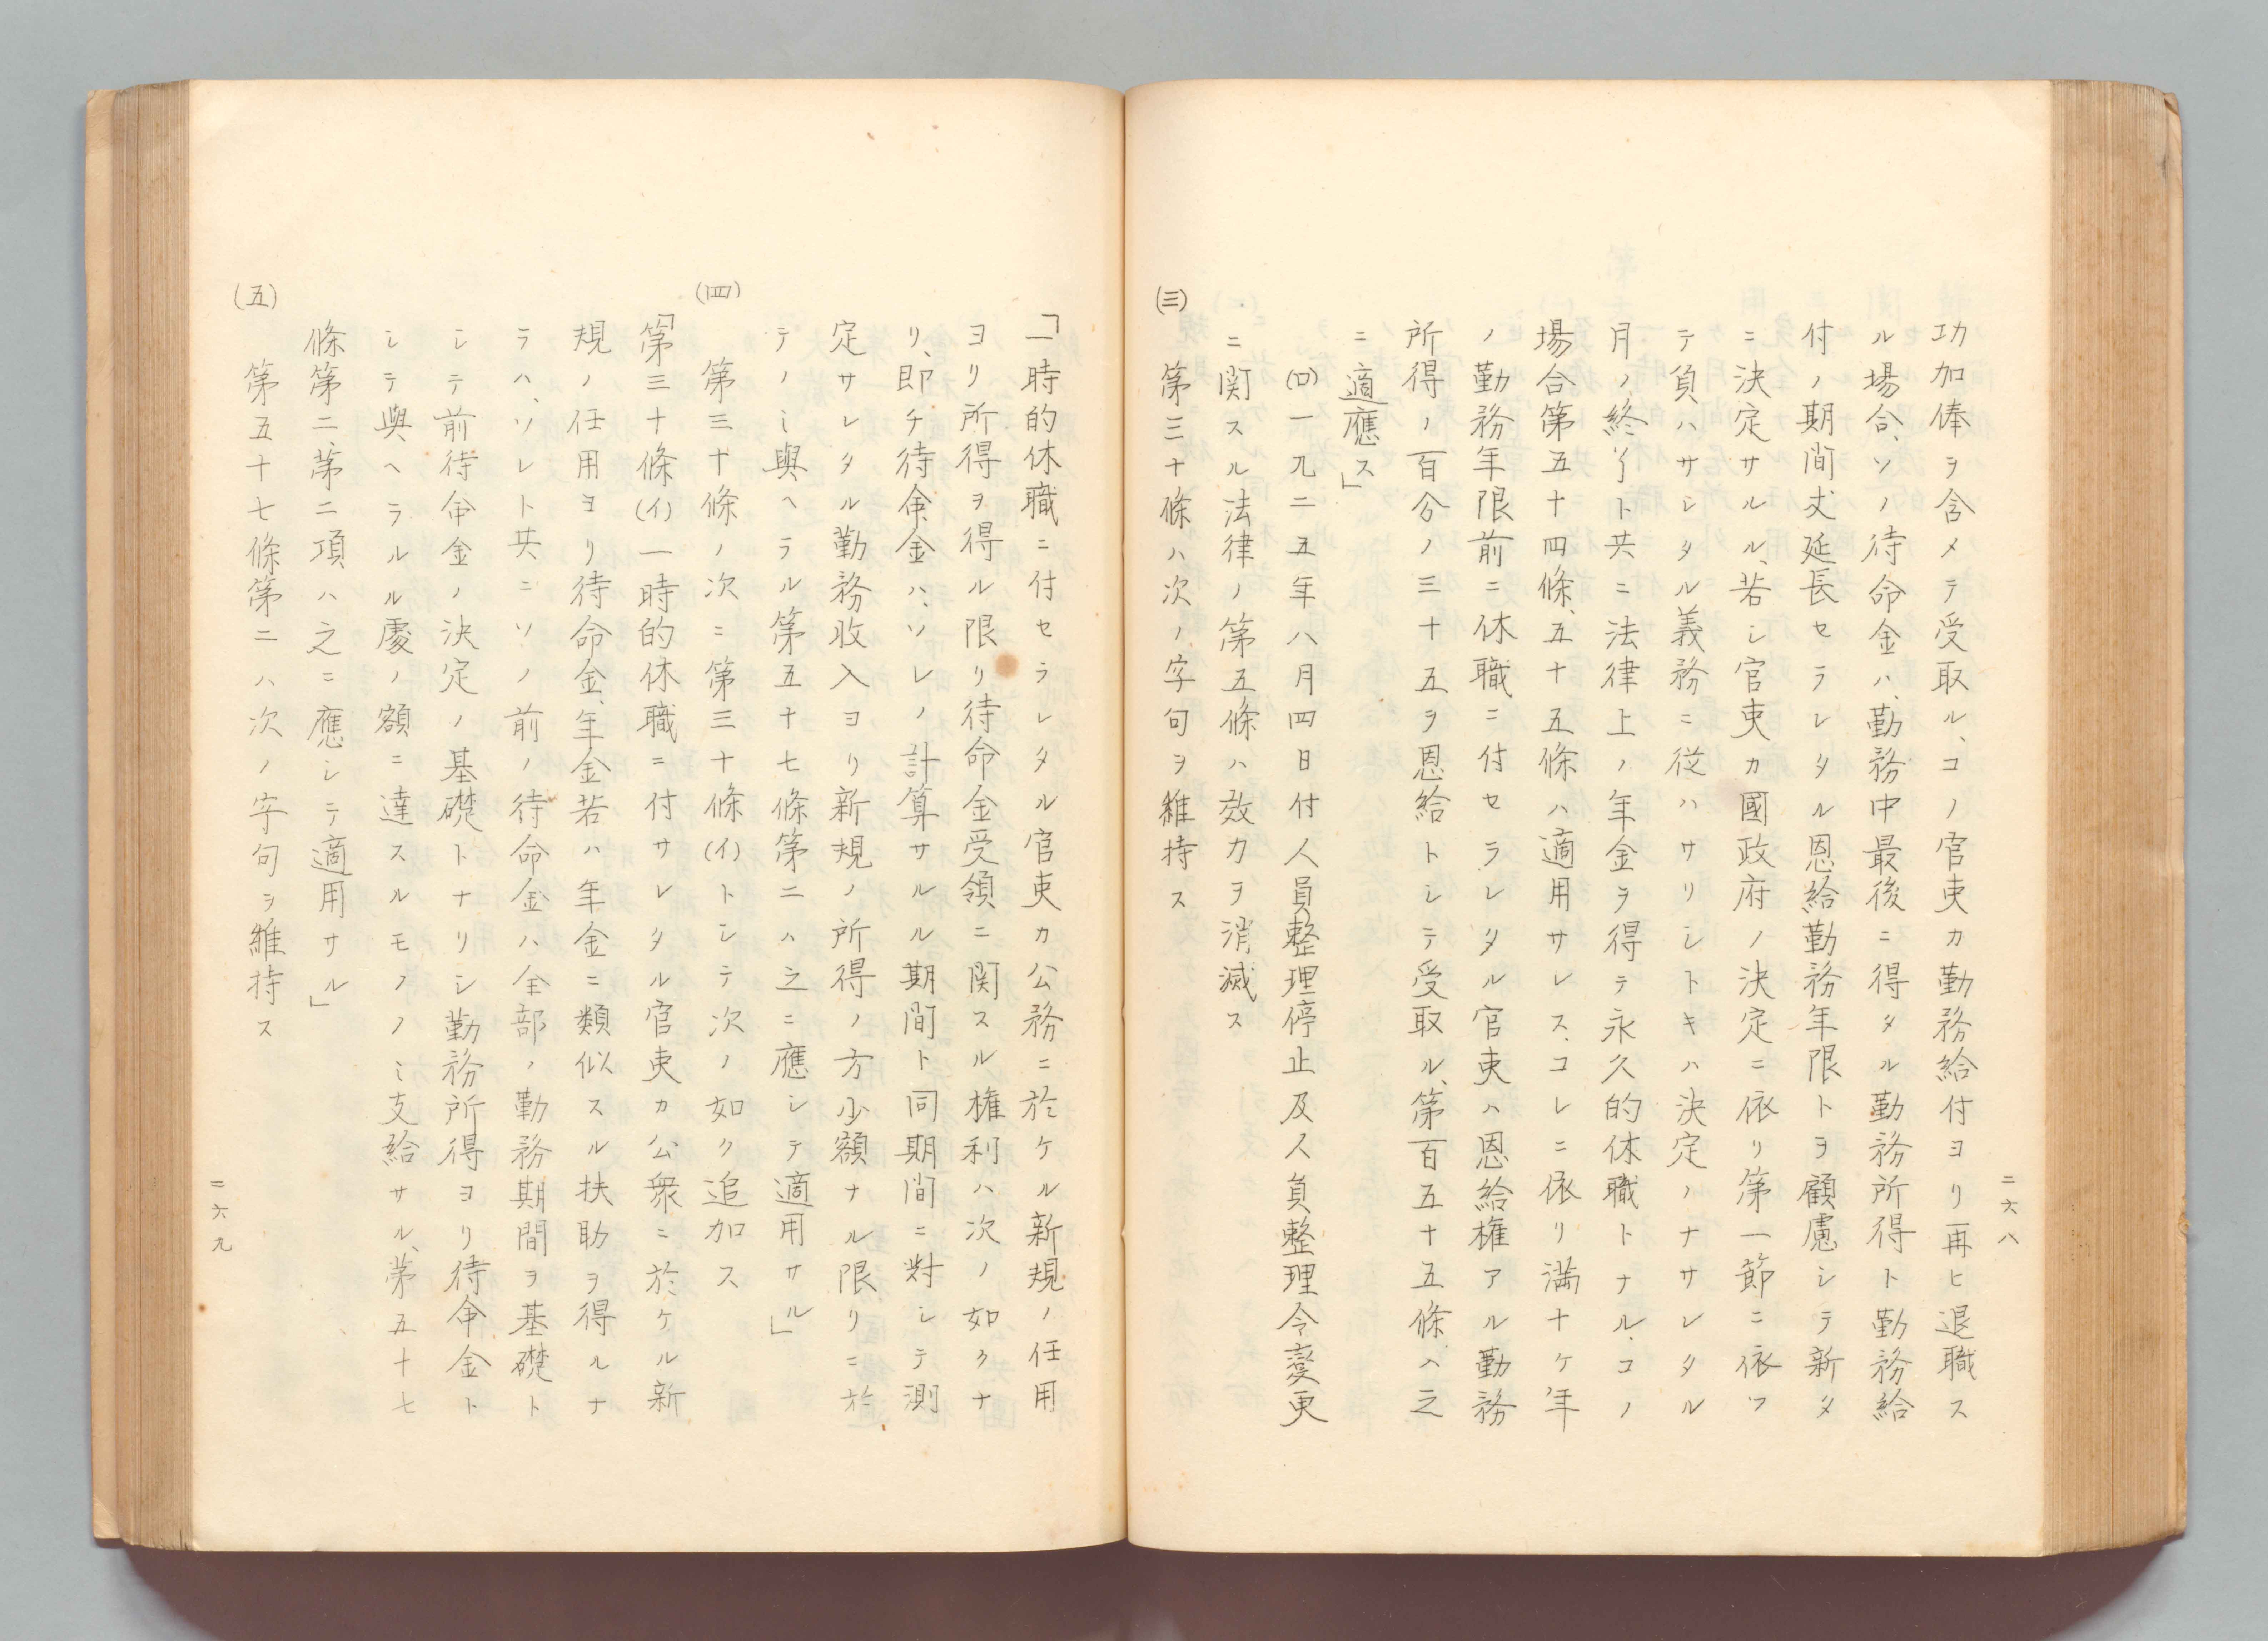 二六八
功加俸ヲ含メテ受取ル、コノ官吏カ勤務給付ヨリ再ヒ退職ス
ル場合、ソノ待命金ハ、勤務中最後ニ得タル勤務所得ト勤務給
付ノ期間丈延長セラレタル恩給勤務年限トヲ顧慮シテ新タ
ニ決定サルル、若シ官吏カ國政府ノ決定ニ依リ第一節ニ依ツ
テ負ハサレタル義務ニ従ハサリシトキハ決定ノナサレタル
月ノ終了ト共ニ法律上ノ年金ヲ得テ永久的休職トナル、コノ
場合第五十四條、五十五條ハ適用サレス、コレニ依リ満十ケ年
ノ勤務年限前ニ休職ニ付セラレタル官吏ハ恩給権アル勤務
所得ノ百分ノ三十五ヲ恩給トシテ受取ル、第百五十五條ハ之
ニ適應ス」
(ロ)一九二五年八月四日付人員整理停止及人員整理令変更
ニ関スル法律ノ第五條ハ效力ヲ消滅ス
(三) 第三十條ハ次ノ字句ヲ維持ス
「一時的休職ニ付セラレタル官吏カ公務ニ於ケル新規ノ任用
ヨリ所得ヲ得ル限リ待命金受領ニ関スル権利ハ次ノ如クナ
リ、即チ待命金ハ、ソレノ計算サルル期間ト同期間ニ対シテ測
定サレタル勤務収入ヨリ新規ノ所得ノ方少額ナル限リニ於
テノミ與ヘラル第五十七條第二ハ之ニ應シテ適用サル」
(四) 第三十條ノ次ニ第三十條(イ)トシテ次ノ如ク追加ス
「第三十條(イ)一時的休職ニ付サレタル官吏カ公衆ニ於ケル新
規ノ任用ヨリ待命金、年金若ハ年金ニ類似スル扶助ヲ得ルナ
ラハ、ソレト共ニソノ前ノ待命金ハ全部ノ勤務期間ヲ基礎ト
シテ前待命金ノ決定ノ基礎トナリシ勤務所得ヨリ待命金ト
シテ與ヘラルル處ノ額ニ達スルモノノミ支給サル、第五十七
條第二、第二項ハ之ニ應シテ適用サル」
(五) 第五十七條第二ハ次ノ字句ヲ維持ス
二六九